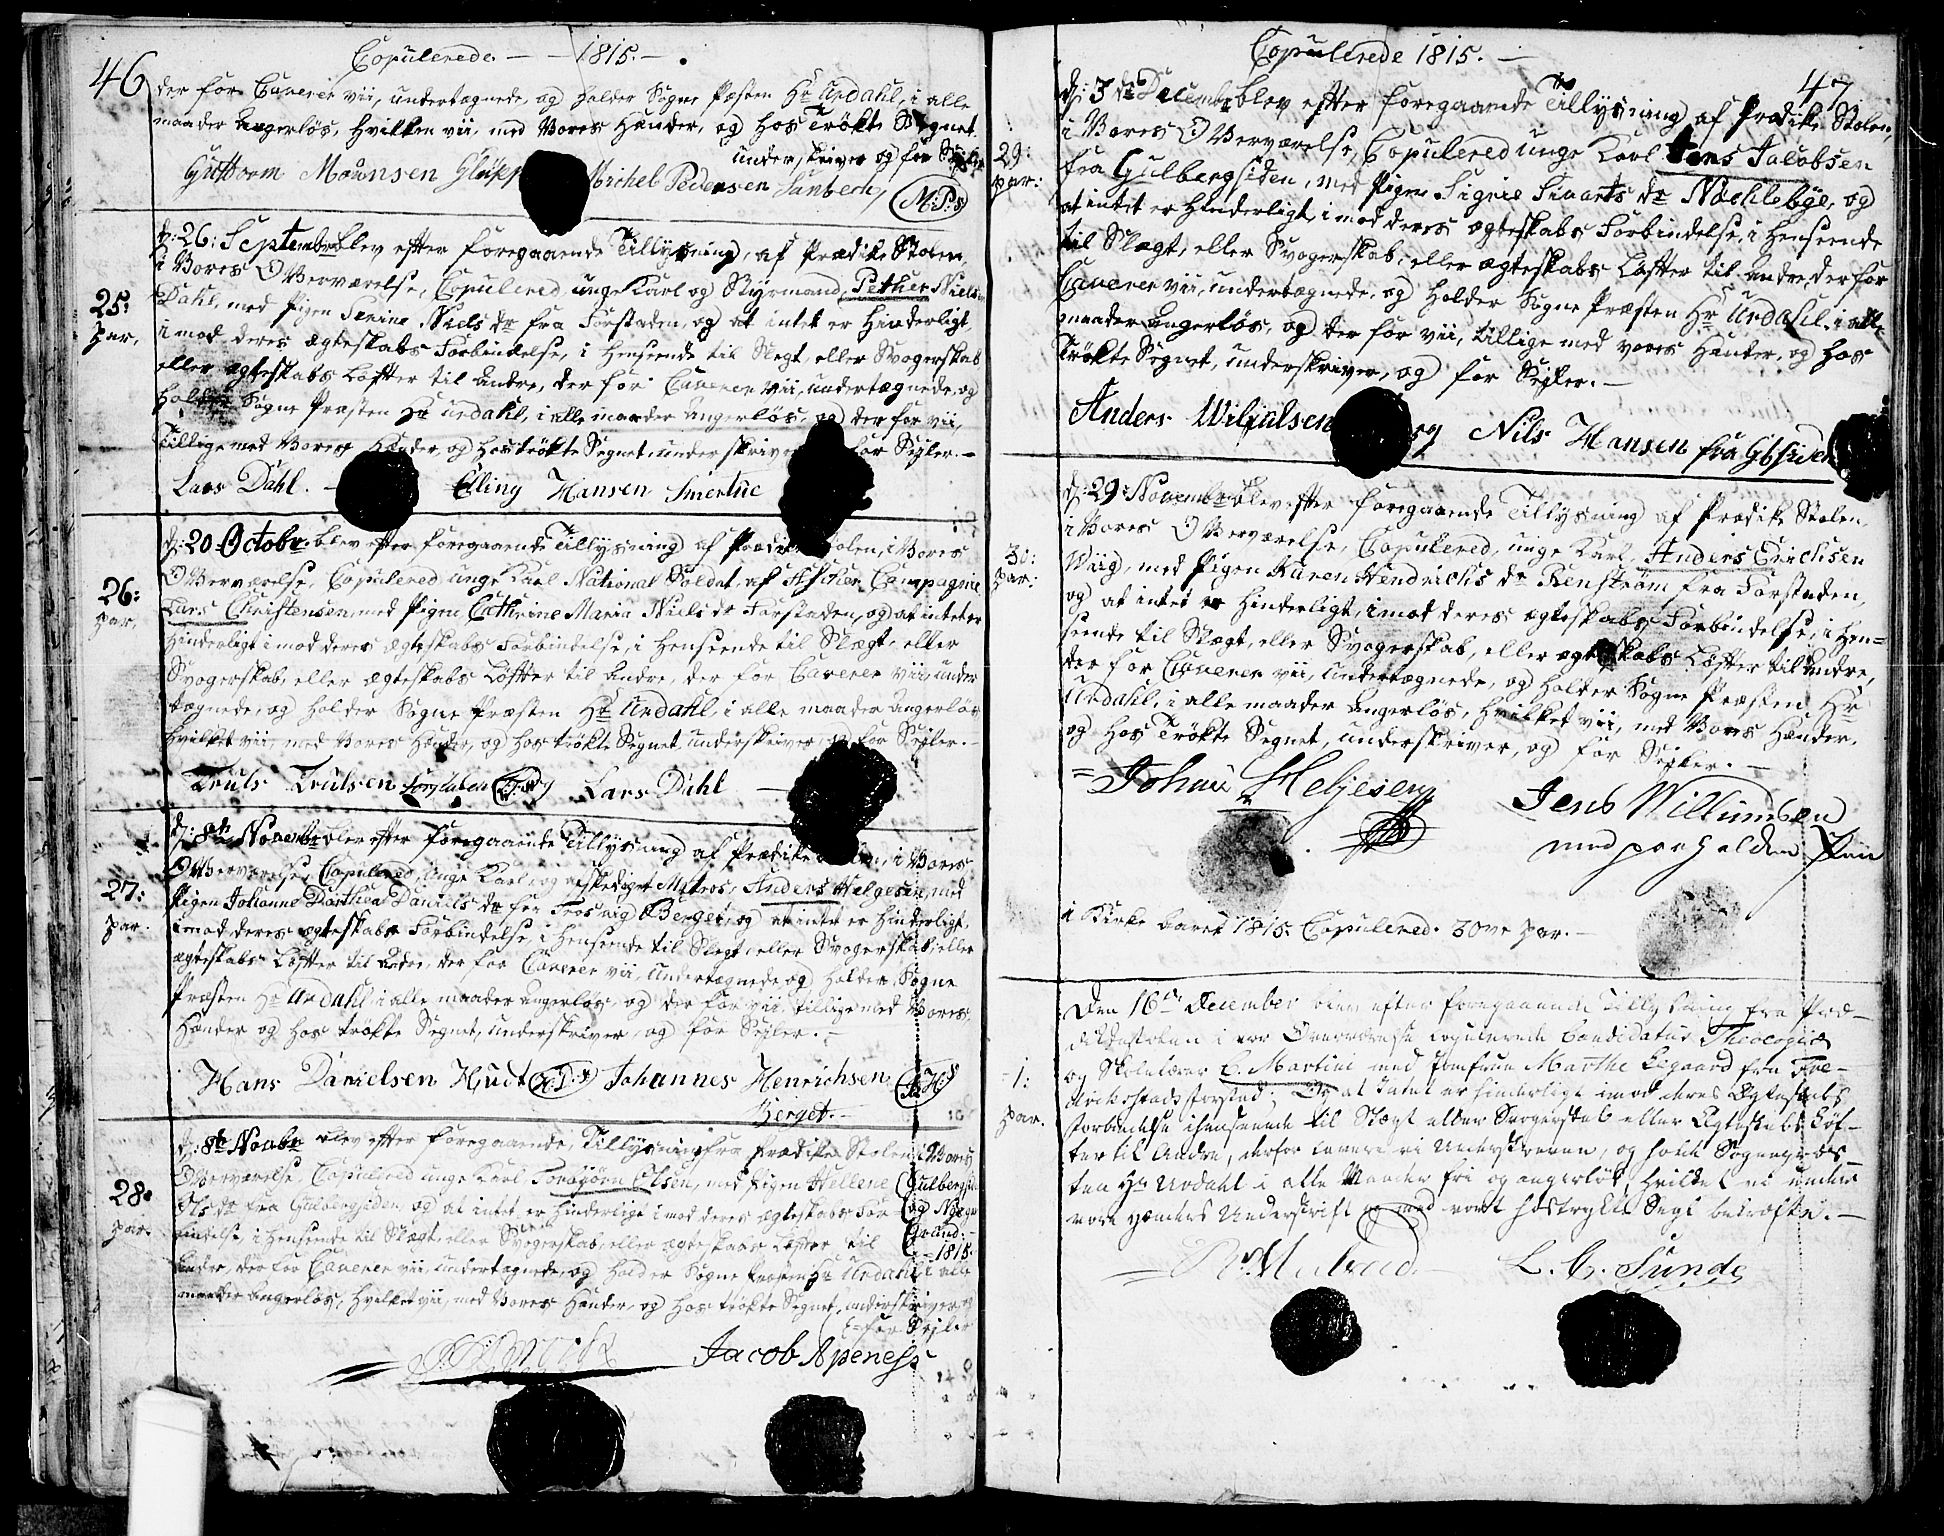 Copulerede — 1815. —
46
der for Caverer vii, undertægnede, og holder Sogne Præsten Hr Urdahl, i alle
maader Angerløs, hvilken vii, med Vores Hænder, og hos Trökte Segnet
underskriver og for
Guttorm Mounsen Michel Pedersen Sanbech M:P:S
25:
par.
d: 26: Septembr blev efter foregaaende Tillysning, af Prædike Stolen,
i Vores Overværelse, Copulered unge Karl og Styrmand, Pether Niels
Dahl, med Pigen Serine Niels dr fra Forstaden, og at intet er Hinderligt
i mod deres ægteskabs Forbindelse, i Henseende til Slegt, eller Svogerskab
eller ægteskabs Løfter til Andre, der for Caverer vii, undertægnede, og
holder Sogne Præsten Hr Urdahl, i alle maader Angerløs, og der for vii,
Tillige med Vores Hænder, og hos trökte Segnet, underskriver for Sejler. —
Lars Dahl. — Elling Hansen
26:
par.
d: 20 Octobr blev efter foregaaende Tillysning af Prædike Stolen, i Vores
Overværelse, Copulered unge Karl National Soldat, af Compagnie
Lars Christensen, med Pigen Cathrine Maria Niels dr Forstaden, og at intet er
Hinderligt i mod deres Ægteskabs Forbindelse, i Henseende til Slægt, eller
Svogerskab, eller Ægteskabs Løfter til Andre, der for Caverer vii, under
tægnede, og holder Sogne Præsten Hr Urdahl, i alle maader Angerløs
hvilket vii, med Vores Hænder, og hos trökte Segnet, underskriver, og for Sejler. —
Truls Trulsen Lars Dahl —
27:
par.
d: 8de Novembr blev efter foregaaende Tillysning af Prædike Stolen, i Vores
Overværelse, Copulered, unge Karl og afskediget Matros, Anders Helgesen, med
Pigen Johanne Dorthea Daniels dr fra Trosvig Berget, og at intet er Hinderligt,
i mod deres ægteskabs Forbindelse, i Henseende til Slægt, eller Svogerskab, eller
ægteskabs Løfter til Andre, der for Caverer vii, undertægnede og holder Sogne
Præsten Hr Urdahl i alle maader Angerløs og der for vii, tillige med Vores
Hænder og hos trökte Segnet, underskriver, og for Sejler. —
Hans Danielsen Hudt H.D.S Johannes Henrichsen J.H.S
Berget. —
28:
par.
d: 8de Novbr blev efter foregaaende Tillysning fra Prædike Stolen i Vores
Overværelse, Copulered unge Karl, Torbjörn Olsen, med Pigen Hellene Gulbergsiden
Ols dr fra Gulbergsiden, og at intet er Hinderligt i mod deres Ægteskabs For
bindelse, i Henseende til Slægt, eller Svogerskab, eller ægteskabs Løfter til
1815.
Andre, der for Caverer vii, undertægnede, og holder Sogne Præsten Hr Urdahl, i alle
maader Angerløs, hvilket vii, med Vores Hænder, og hos trökte Segnet, underskriver og
for Sejler
Jacob Apeness
Copulerede 1815. —
47
29:
par:
d: 3de Decembr blev efter foregaaende Tillysning af Prædike Stolen,
i Vores Overværelse, Copulered unge Karl Jens Jacobsen
fra Gulbergsiden, med Pigen Signie Sivarts dr Nöchlebye, og
at intet er Hinderligt, i mod deres ægteskabs Forbindelse, i Henseende
til Slægt, eller Svogerskab, eller ægteskabs Løfter til Andre, der for
Caverer vii, undertægnede, og holder Sogne Præsten Hr Urdahl, i alle
maader Angerløs, og der for vii, tillige med vores Hænder, og hos
Trökte Segnet, underskriver, og for Sejler. —
Anders Nils Hansen fra
30:
par:
d: 29: Novembr blev efter foregaaende Tillysning af Prædike Stolen,
i Vores Overværelse, Copulered, unge Karl, Anders Erichsen
Wiig, med Pigen Karen Hendrichs dr Renström fra Forstaden,
og at intet er Hinderligt, i mod deres ægteskabs Forbindelse, i Hen=
seende til Slægt, eller Svogerskab, eller ægteskabs Løfter til Andre,
der for Caverer vii, undertægnede, og holder Sogne Præsten Hr
Urdahl, i alle maader Angerløs, hvilket vii, med Vores Hænder,
og hos Trökte Segnet, underskriver, og for Sejler. —
Johan Heljesen Jens Willumsen
med paaholden Pen
i Kirke Aaret 1815. Copulered. 30ve par. —
1:
par.
Den 16de December blev efter foregaaende Tillysning fra Præ-
dikestolen i vor Overværelse copulerede Candidatus Theologiæ
og Skolelærer C. Martini med Jomfrue Marthe Elgaard fra Fre-
deriksstads Forstad; Og at Intet er hinderligt imod deres Ægteskabs
Forbindelse ihenseende til Slægt eller Svogerskab eller Ægteskabs Løf-
ter til Andre, derfor Cavere vi Underskrevne, og holde Sognepræs-
ten Hr Urdahl i alle Maader fri og angerløs, hvilket vi under
vore Hænders Underskrift og med vort hostrykte Segl bekræfte. —
L. C. Sunde